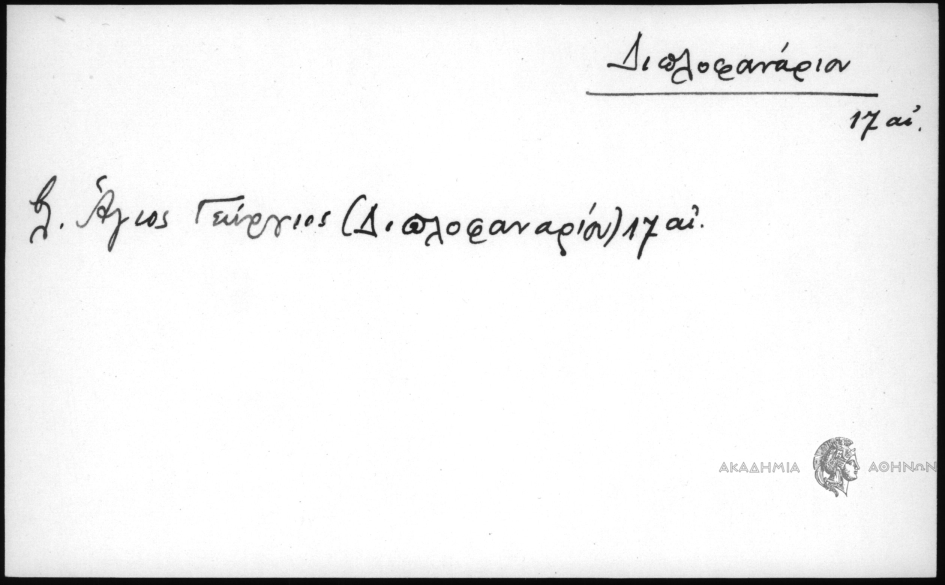 Διπλοφανάριον
17 αἰ.
βλ. Ἅγιος Γεώργιος (Διπλοφαναρίου) 17 αἰ.
ΑΚΑΔΗΜΙΑ ΑΘΗΝΩΝ